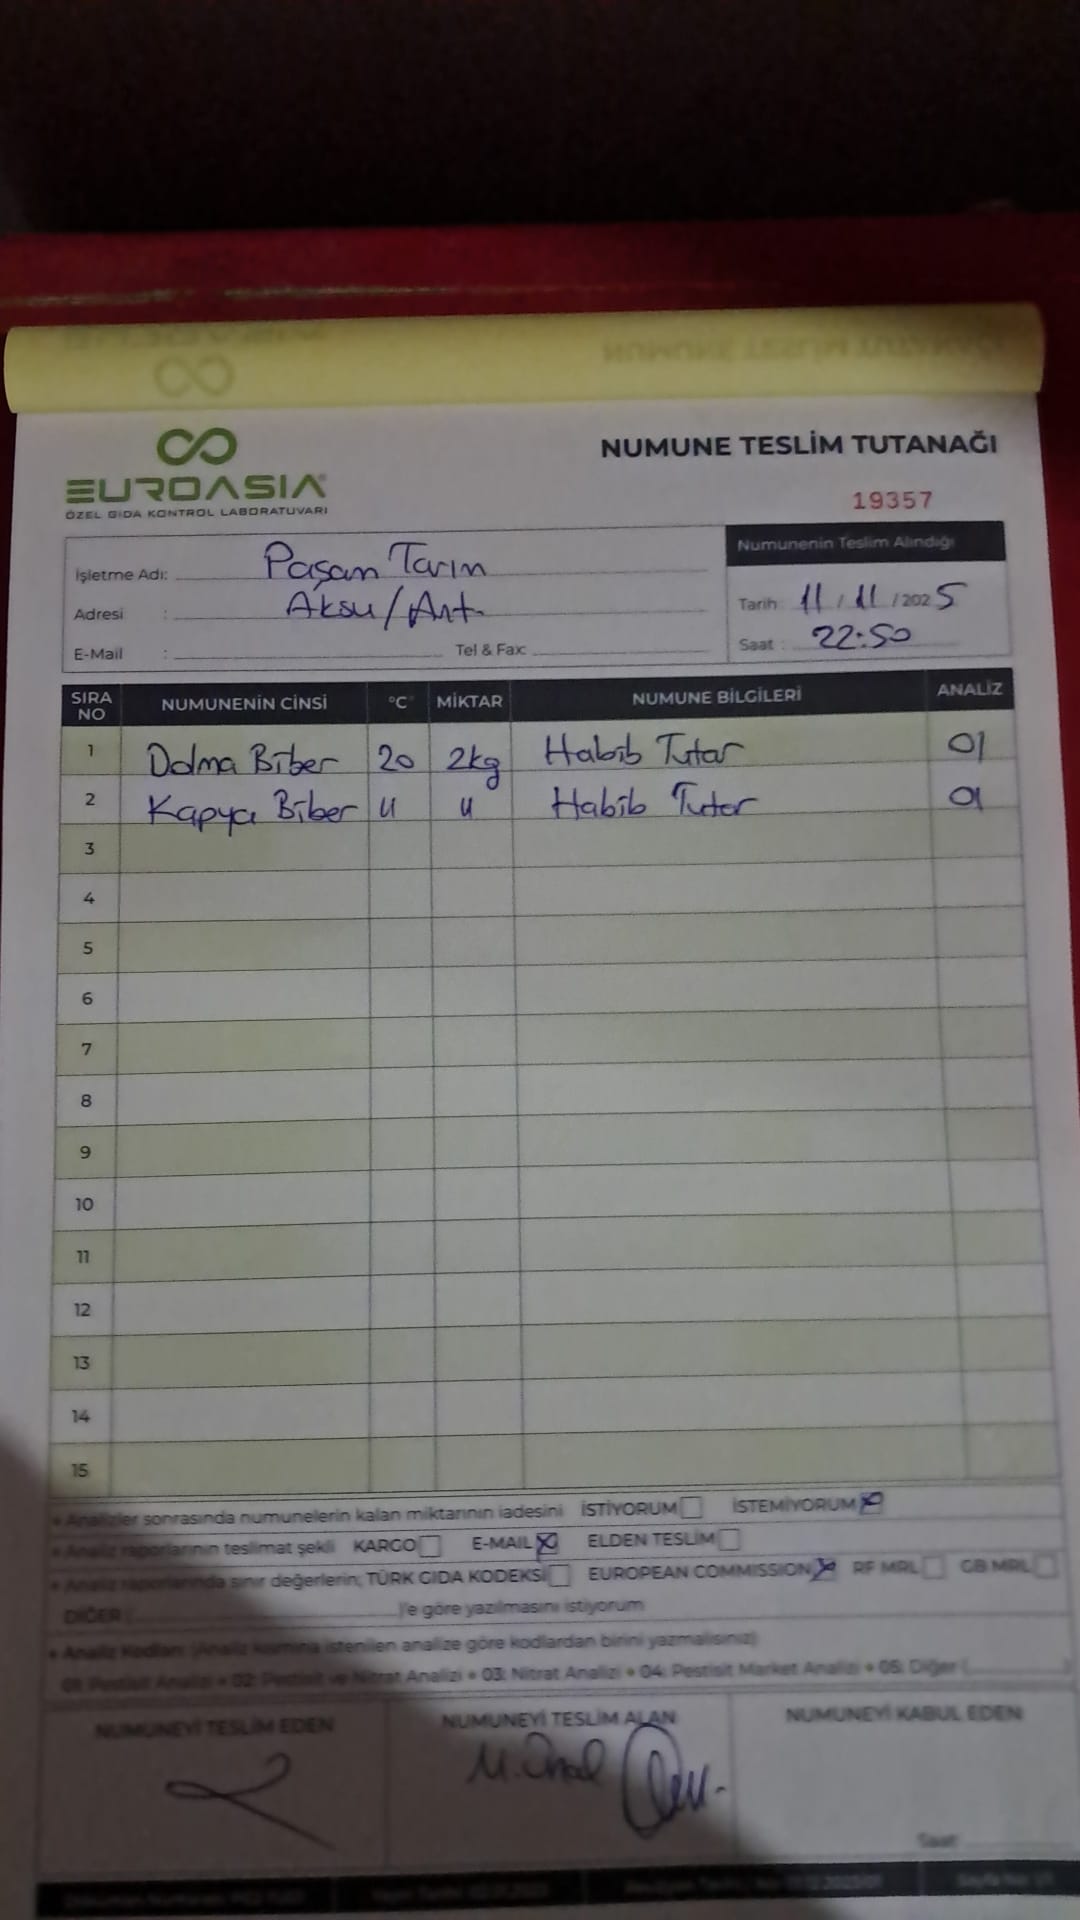 EUROASIA
ÖZEL GIDA KONTROL LABORATUVARI
NUMUNE TESLİM TUTANAĞI
19357
İşletme Adı: Paşan Tarım
Adresi : Aksu/Ant.
E-Mail : Tel & Fax:
Numunenin Teslim Alındığı
Tarih 11/11/2025
Saat : 22:50
SIRA NO NUMUNENİN CİNSİ °C MİKTAR NUMUNE BİLGİLERİ ANALİZ
1 Dolma Biber 20 2kg Habib Tutar 01
2 Kapya Biber u u Habib Tutar 01
3
4
5
6
7
8
9
10
11
12
13
14
15
• Analizler sonrasında numunelerin kalan miktarının iadesini İSTİYORUM İSTEMİYORUM
• Analiz raporlarının teslimat şekli KARGO E-MAIL ELDEN TESLİM
• Analiz raporlarında sınır değerlerin; TÜRK GIDA KODEKSİ EUROPEAN COMMISSION RF MRL GB MRL
DİĞER ( )'e göre yazılmasını istiyorum
• Analiz Kodları: (Analiz kısmına istenilen analize göre kodlardan birini yazmalısınız)
01: Pestisit Analizi • 02: Pestisit ve Nitrat Analizi • 03: Nitrat Analizi • 04: Pestisit Market Analizi • 05: Diğer ( )
NUMUNEYİ TESLİM EDEN NUMUNEYİ TESLİM ALAN NUMUNEYİ KABUL EDEN
M. Ünal
Saat: